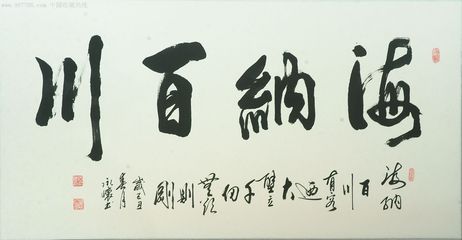 www.997788.com 中国收藏热线
海納百川
海納百川有容迺大壁立千仞無欲則剛
春月